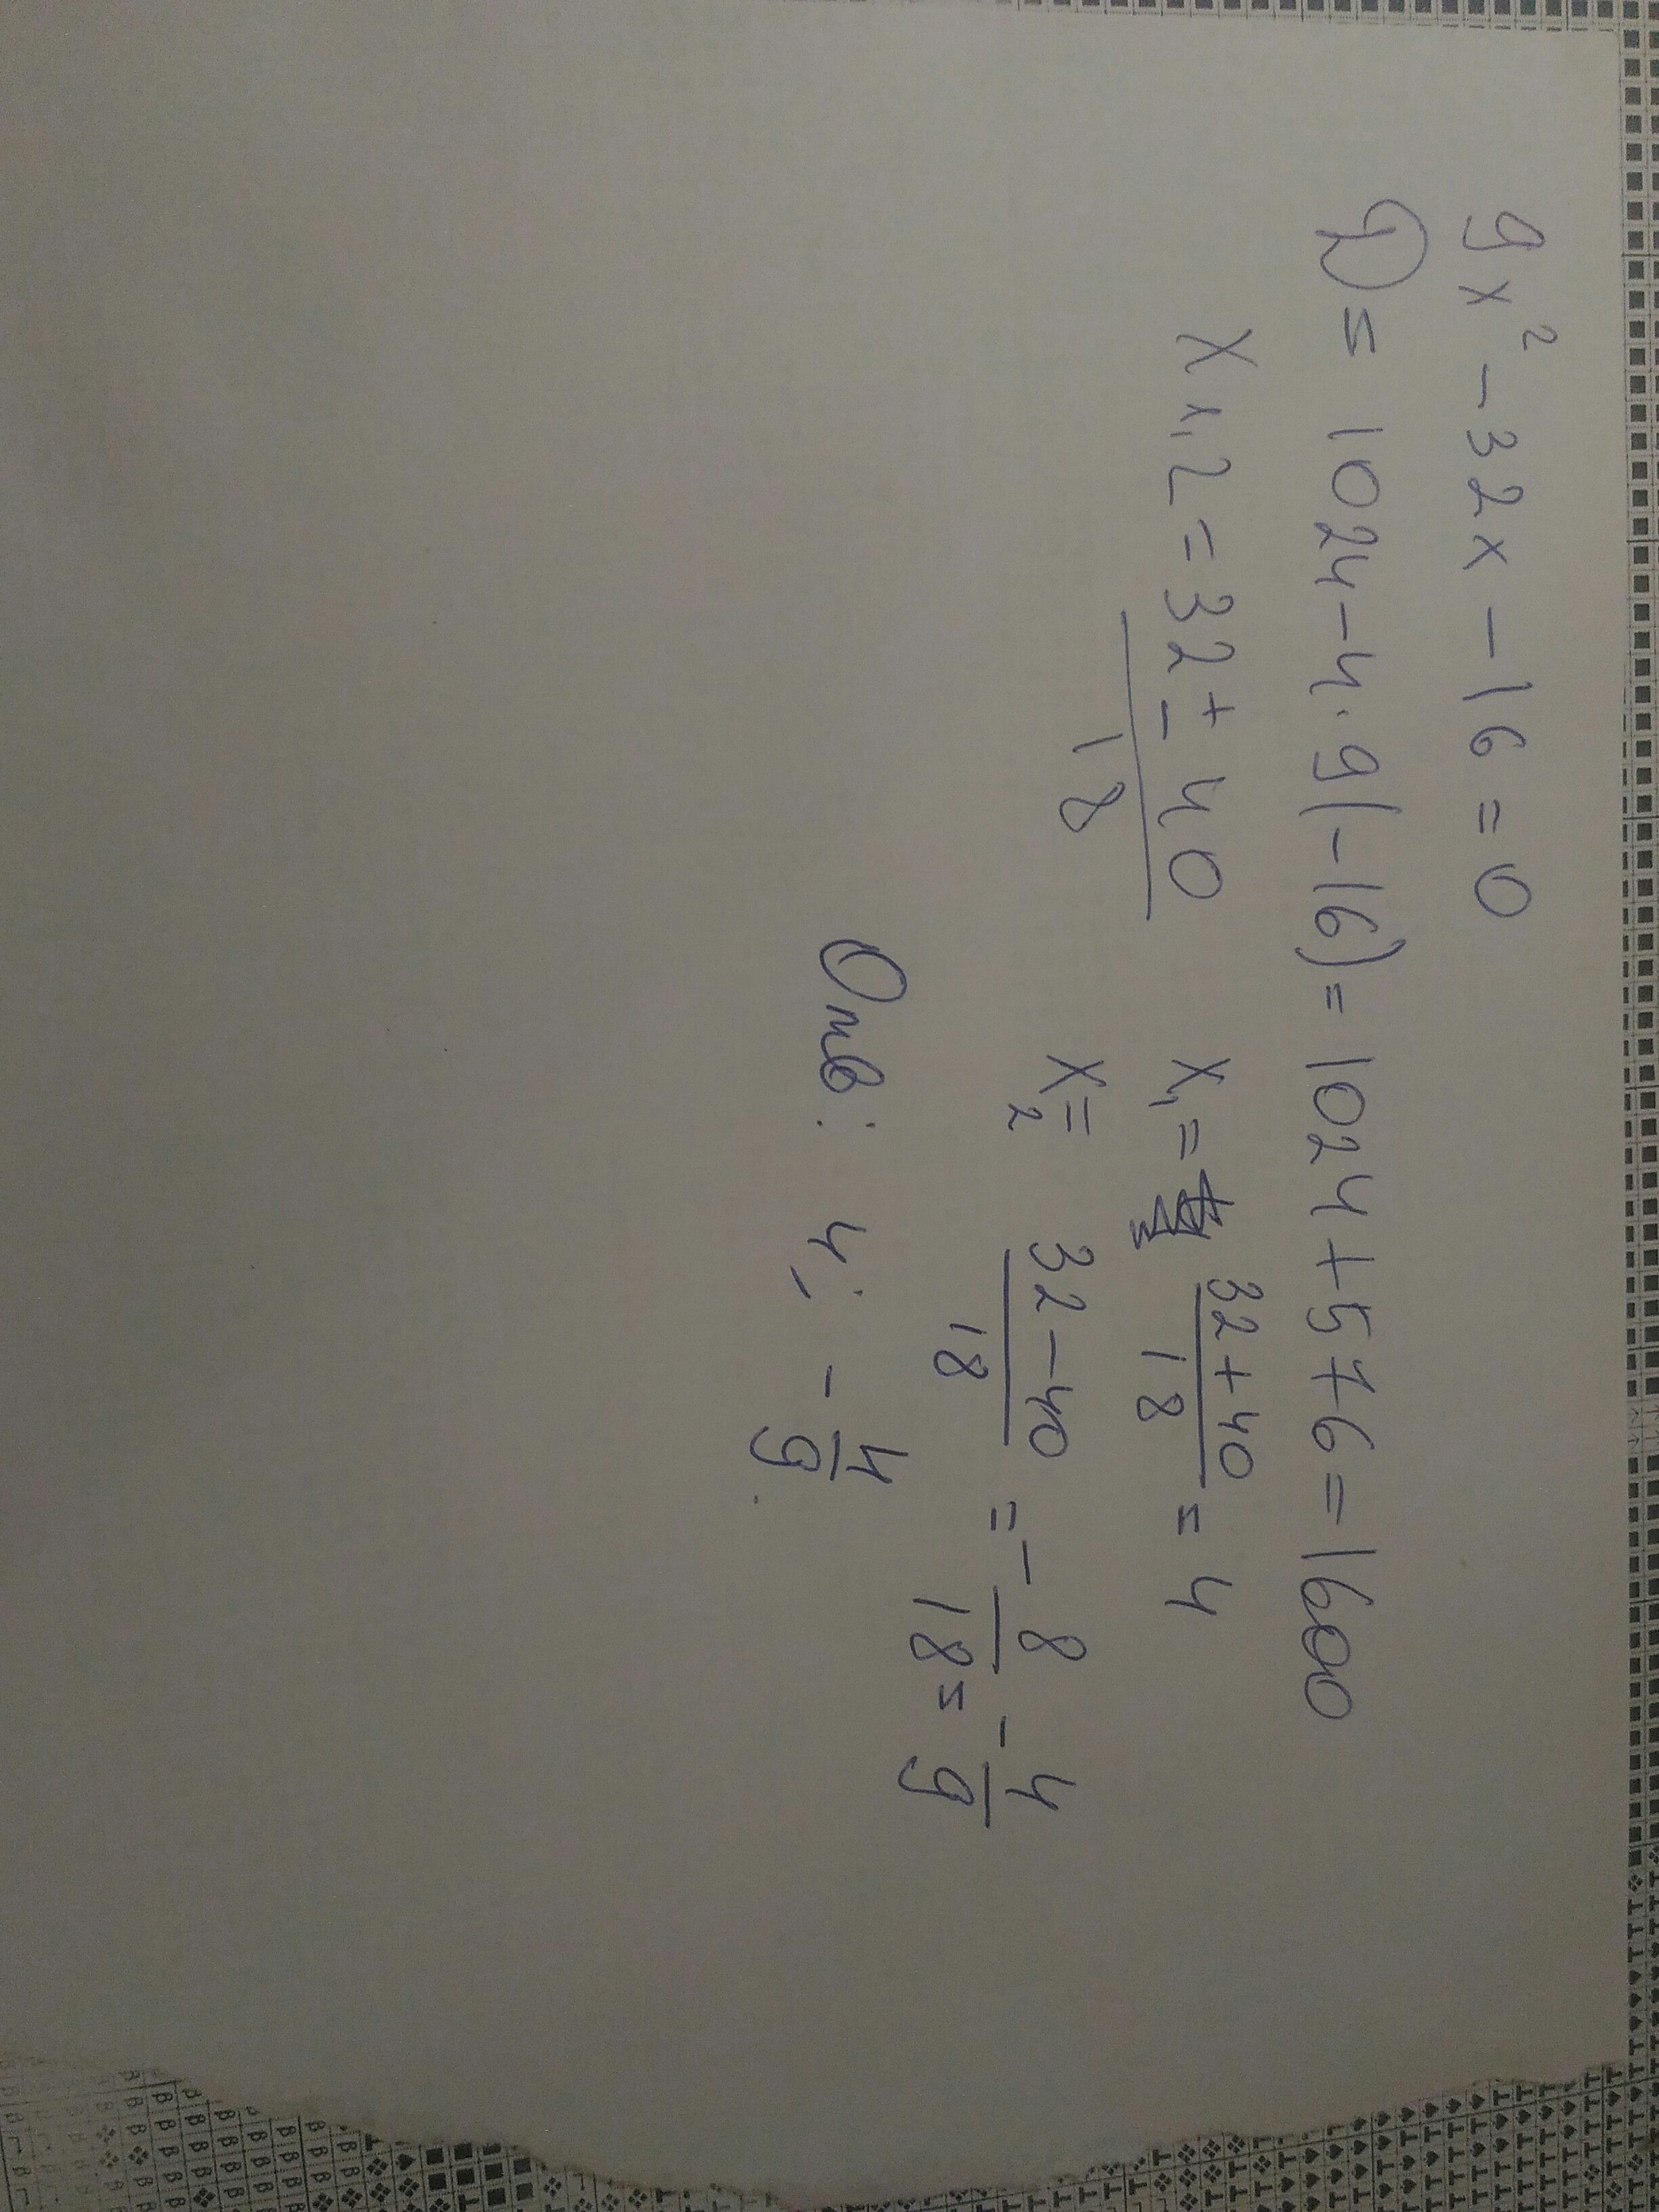 9x² - 32x - 16 = 0
D = 1024 - 4 · 9(-16) = 1024 + 576 = 1600
x₁,₂ = (32 ± 40)/18
x₁ = (32 + 40)/18 = 4
x₂ = (32 - 40)/18 = -8/18 = -4/9
Отв: 4; -4/9.